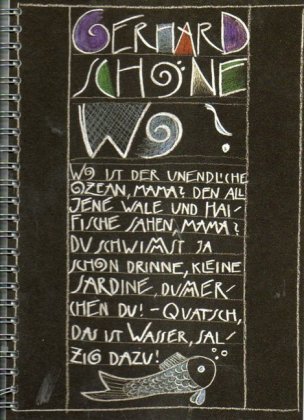 GERHARD
SCHÖNE
WO?
WO IST DER UNENDLICHE
OZEAN, MAMA? DEN ALL
JENE WALE UND HAI-
FISCHE SAHEN, MAMA?
DU SCHWIMMST JA
SCHON DRINNE, KLEINE
SARDINE, DUMMER-
CHEN DU! - QUATSCH,
DAS IST WASSER, SAL-
ZIG DAZU!